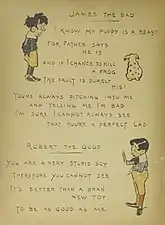 JAMES THE BAD
I KNOW MY PUPPY IS A BEAST
FOR FATHER SAYS
HE IS
AND IF I CHANCE TO KILL
A FROG
THE FAULT IS SURELY
HIS!
YOU'RE ALWAYS PITCHING INTO ME
AND TELLING ME I'M BAD
I'M SURE I CANNOT ALWAYS SEE
THAT YOU'RE A PERFECT LAD
ROBERT THE GOOD
YOU ARE A VERY STUPID BOY
THEREFORE YOU CANNOT SEE
IT'S BETTER THAN A BRAN
NEW TOY
TO BE AS GOOD AS ME.